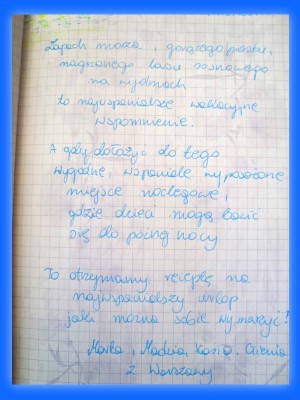 Zapach morza, gorącego piasku,
nagrzanego lasu sosnowego
na wydmach
to najwspanialsze wakacyjne
wspomnienie.
A gdy dołożyć do tego
wygodne, wspaniale wyposażone
miejsce noclegowe,
gdzie dzieci mogą bawić
się do późnej nocy
To otrzymamy receptę na
najwspanialszy urlop
jaki można sobie wymarzyć!
Marta, Madzia, Kasia,
z Warszawy